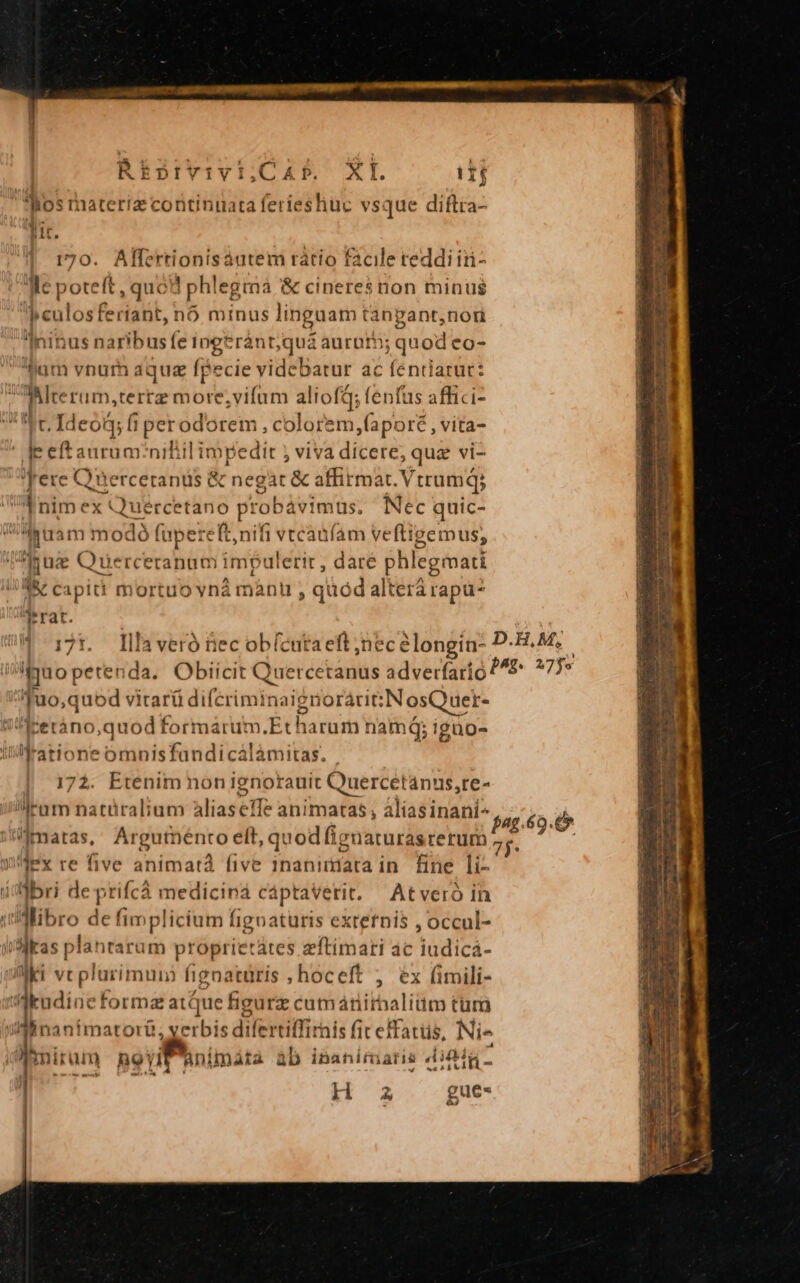 REDIVIVI, CAP. XI. 115
os materiæ continuata series huc vsque distra-
170. Assertionis autem ratio facile reddi in-
potest, quod phlegma & cineres non minus
oculos feriant, nõ minus linguam tangant, non
minus naribus se ingerant, quã aurum; quod eo-
vnum aquæ specie videbatur ac sentiatur:
Alterum, terræ more, visum aliosq́; sensus affici-
Ideoq́; si per odorem, colorem, saporẽ, vita-
est aurum: nihil impedit, viva dicere, quæ vi-
Quercetanus & negat & affirmat. Vtrumq́;
enim ex Quercetano probavimus. Nec quic-
quam modò superest, nisi vt causam vestigemus,
quæ Quercetanum impulerit, dare phlegmati
& capiti mortuo vnâ manu, quod alterâ rapu-
erat.
171. Illa verò nec obscura est, nec è longin- D.H.M.
quo petenda. Obiicit Quercetanus adversario pag. 275.
suo, quod vitarũ discrimina ignorarit: Nos Quer-
cetano, quod formarum. Et harum namq́; igno-
ratione omnis fundi calamitas.
172. Etenim non ignorauit Quercetanus, re-
rum naturalium alias esse animatas, alias inani-
matas. Argumento est, quod signaturas rerum pag. 69. &
ex re sive animatâ sive inanimata in fine li- 75.
bri de priscâ medicina captaverit. At verò in
libro de simplicium signaturis externis, occul-
tas plantarum proprietates æstimari ac iudica-
ri vt plurimum signaturis, hoc est, ex simili-
tudine formæ atque figuræ cum animalium tum
inanimatorũ, verbis disertissimis sit effatus, Ni-
mirum novit animata ab inanimatis distin-
H 2 gue-